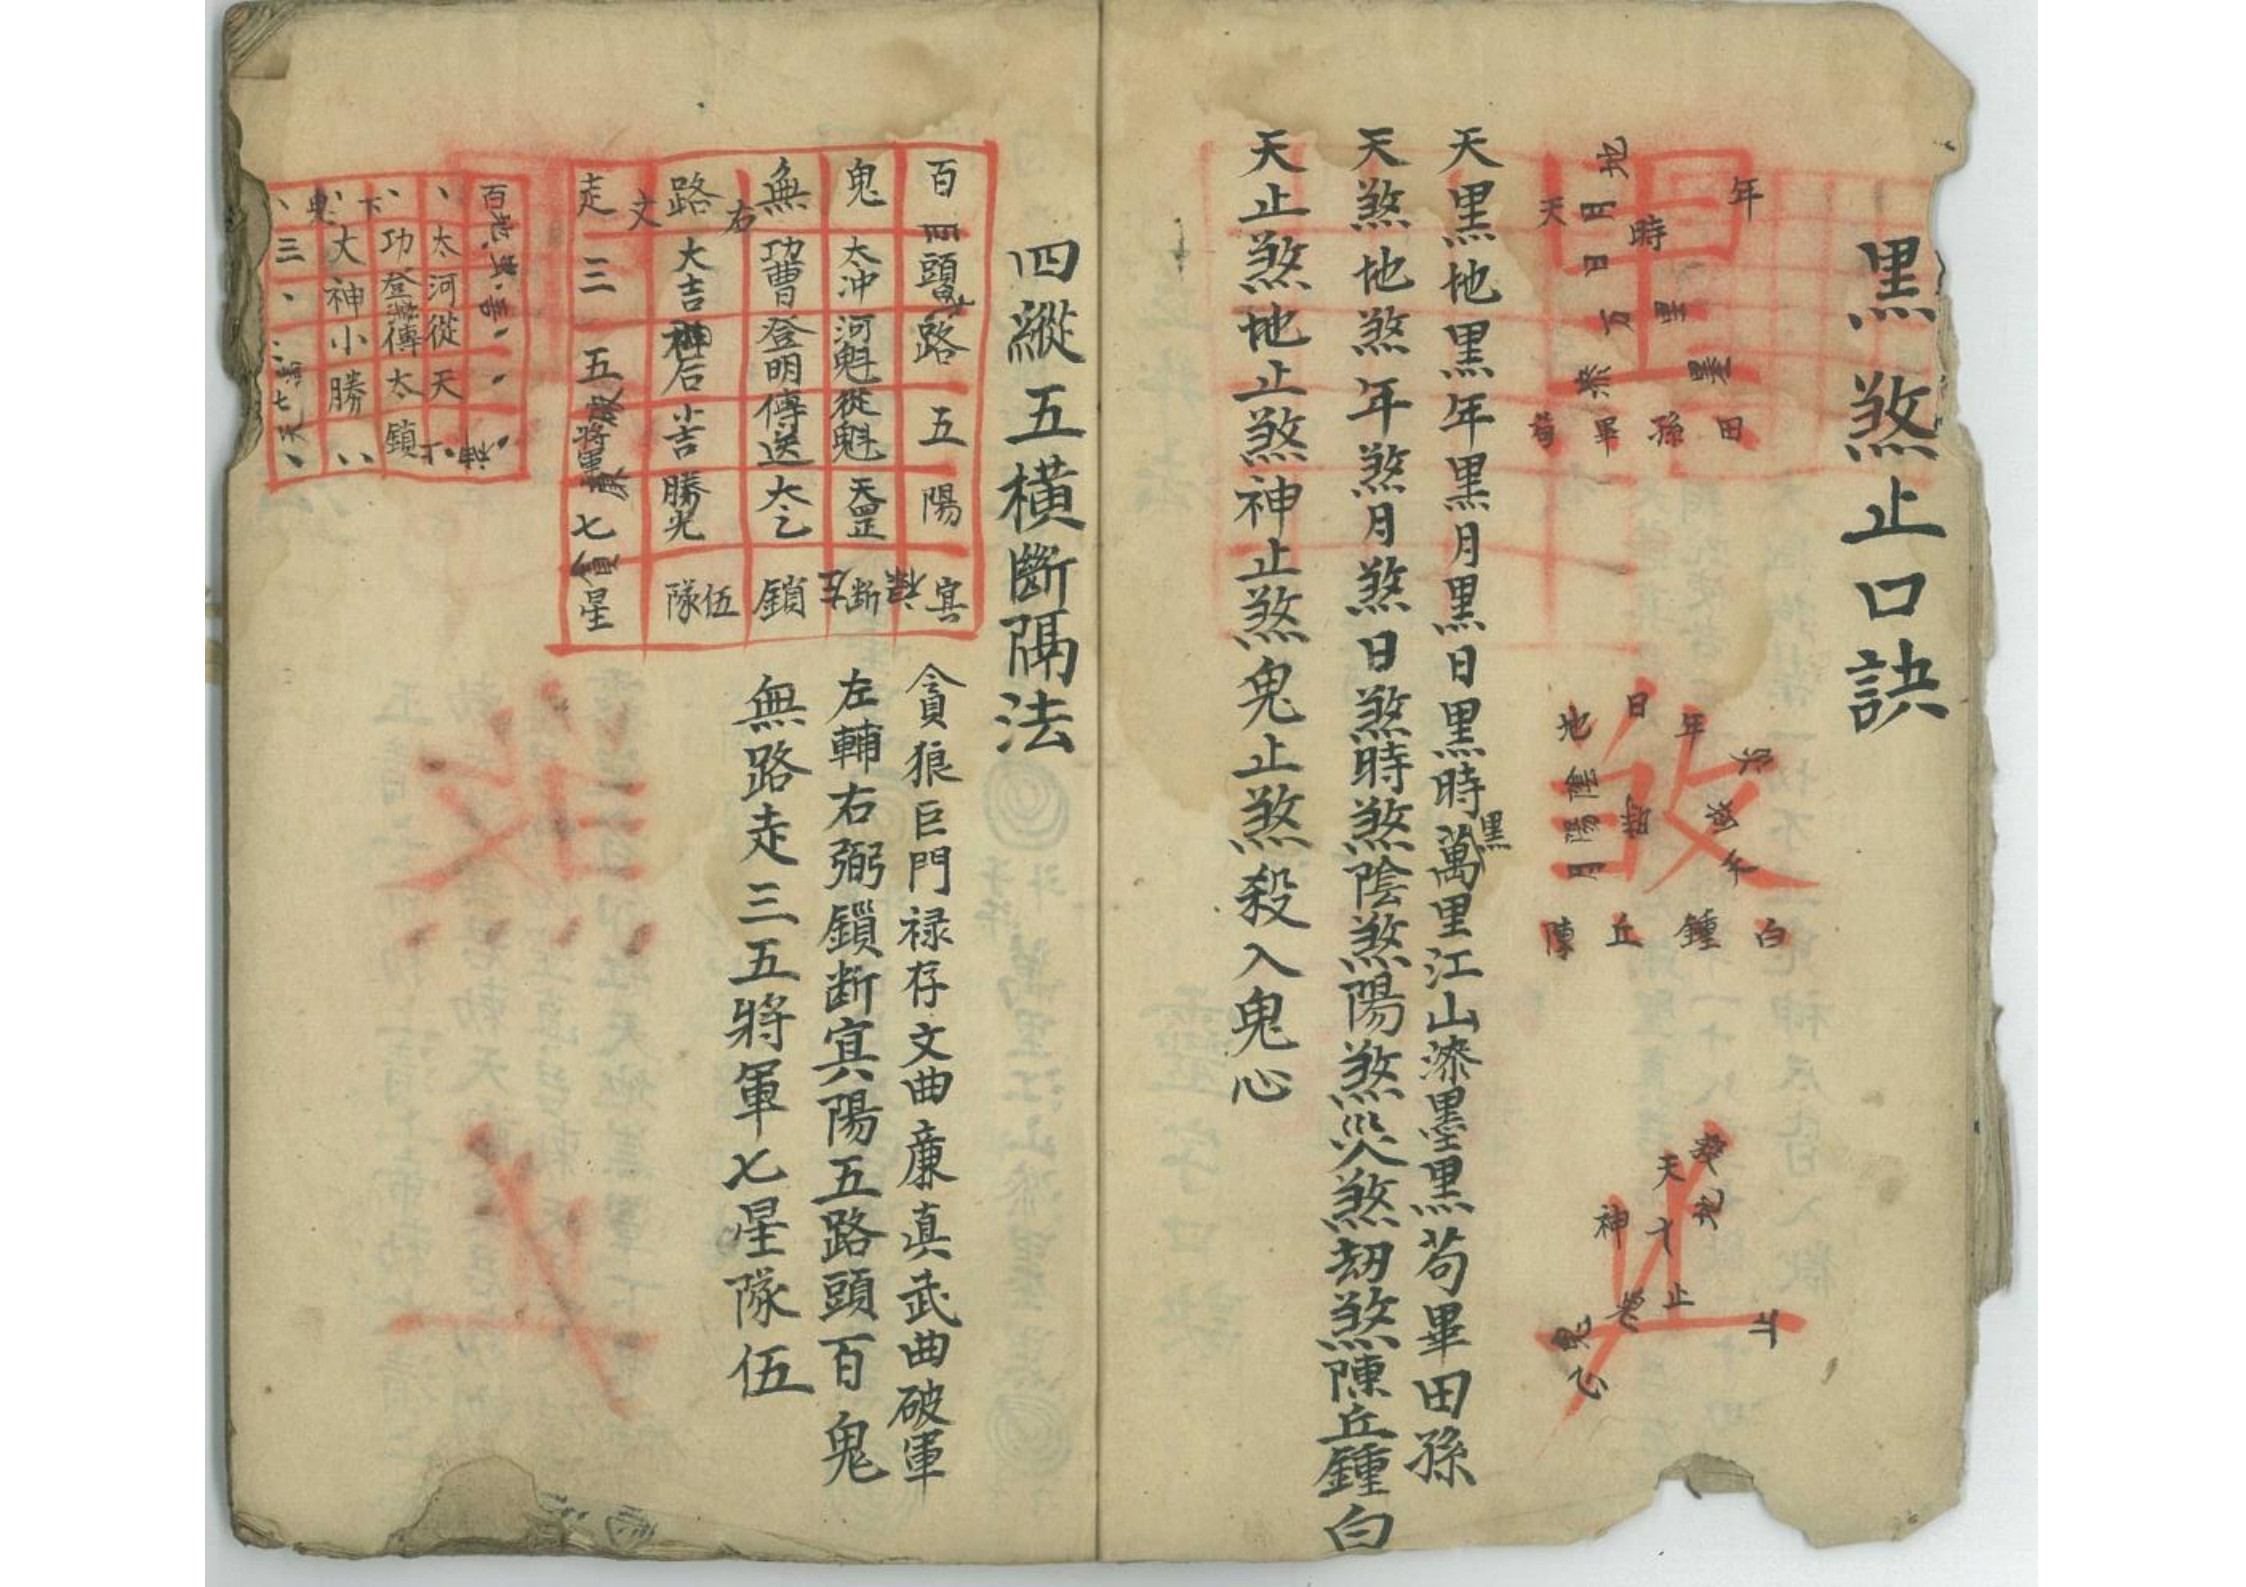 黑煞止口訣
年
時
地
月
日
天
万
里
黍
墨
田
孫
畢
苟
日
年
地
陰
陽
月
白
鍾
丘
陳
天
地
神
止
鬼
心
天黑地黑年黑月黑日黑時黑萬里江山漆墨黑苟畢田孫
天煞地煞年煞月煞日煞時煞陰煞陽煞災煞劫煞陳丘鍾白
天止煞地止煞神止煞鬼止煞殺入鬼心
四縱五橫斷隔法
百四頭路五陽寘
鬼太冲河魁從魁天罡断左
無功曹登明傳送太乙鎖
右
路大吉神后小吉勝光隊伍
文
走三五將軍七星
貪狼巨門禄存文曲廉真武曲破軍
左輔右弼鎖断寘陽五路頭百鬼
無路走三五將軍七星隊伍
百
太河從天
功登傳太鎖
大神小勝
鬼
三
七